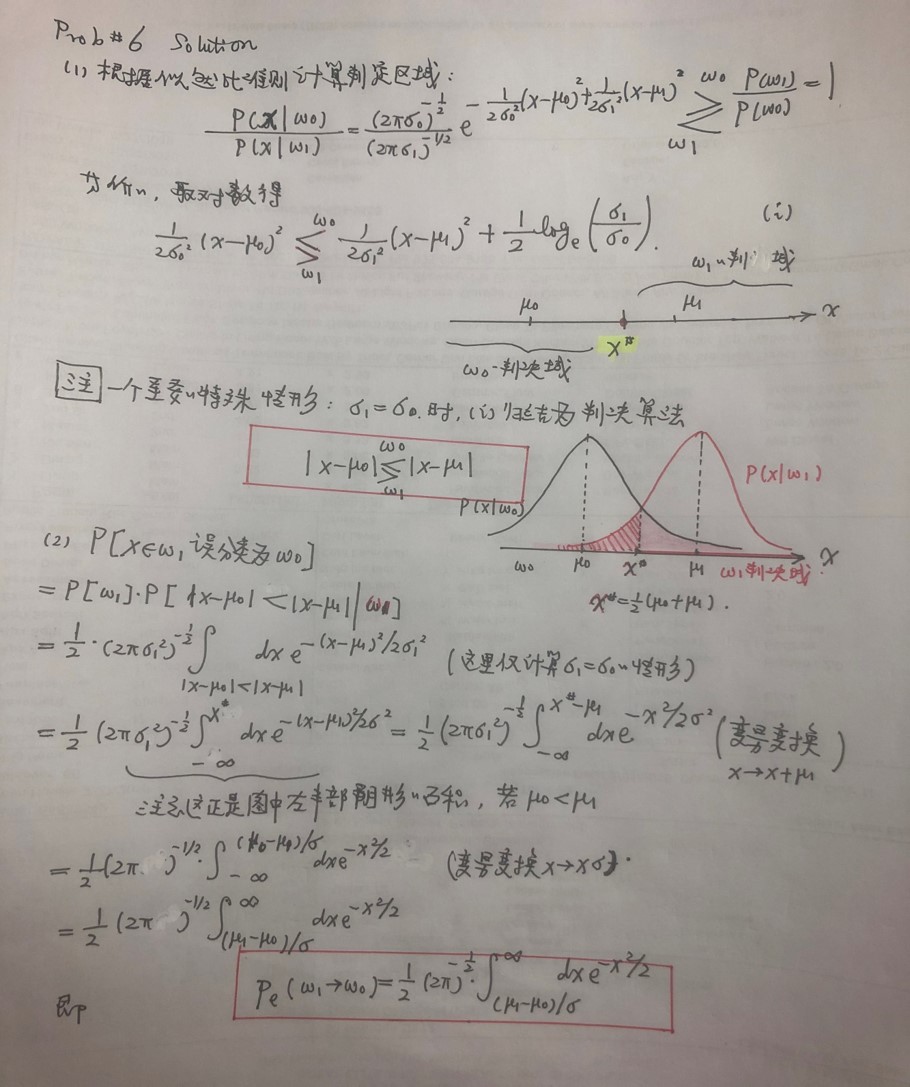 Prob#6 Solution
(1) 根据似然比准则计算判定区域:
P(x|ω0)/P(x|ω1) = (2πσ0)^{-1/2}/(2πσ1)^{-1/2} e^{-1/2σ0²(x-μ0)²+1/2σ1²(x-μ1)²} ≷ ω0 ω1 P(ω1)/P(ω0) = 1
等价地, 取对数得
1/2σ0² (x-μ0)² ≶ ω0 ω1 1/2σ1² (x-μ1)² + 1/2 log_e(σ1/σ0). (i)
ω1-判决域
μ0 μ1 x
x*
ω0-判决域
注 一个重要的特殊情形: σ1=σ0时, (i)归结为判决算法
|x-μ0| ≶ ω0 ω1 |x-μ1|
P(x|ω0) P(x|ω1)
ω0 μ0 x* μ1 ω1判决域 x
x*=1/2(μ0+μ1).
(2) P[x∈ω1误分类为ω0]
= P[ω1]·P[|x-μ0|<|x-μ1| | ω1]
= 1/2·(2πσ1²)^{-1/2} ∫_{|x-μ0|<|x-μ1|} dx e^{-(x-μ1)²/2σ1²} (这里仅计算σ1=σ0的情形)
= 1/2 (2πσ1²)^{-1/2} ∫_{-∞}^{x*} dx e^{-(x-μ1)²/2σ²} = 1/2 (2πσ1²)^{-1/2} ∫_{-∞}^{x*-μ1} dx e^{-x²/2σ²} (变量变换 x→x+μ1)
注意这正是图中左半部阴影的面积, 若μ0<μ1
= 1/2 (2π)^{-1/2}·∫_{-∞}^{(μ0-μ1)/σ} dx e^{-x²/2} (变量变换x→xσ).
= 1/2 (2π)^{-1/2} ∫_{(μ1-μ0)/σ}^{∞} dx e^{-x²/2}
即 Pe(ω1→ω0) = 1/2 (2π)^{-1/2}·∫_{(μ1-μ0)/σ}^{∞} dx e^{-x²/2}